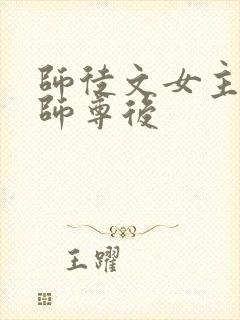 師徒文女主
師尊後
王躍